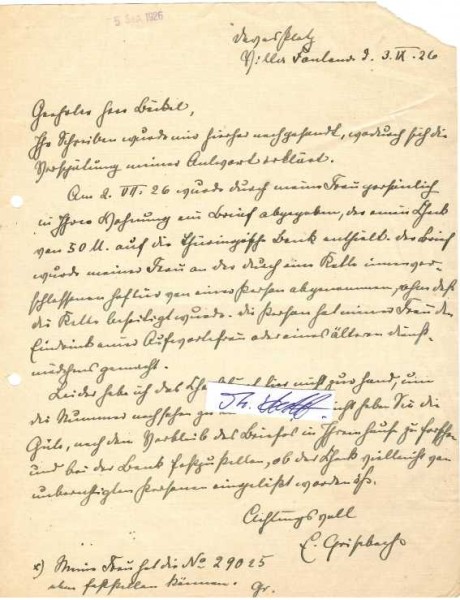 5. Sep. 1926
3. IX. 26
Geehrter Herr Bückel,
Ihr Schreiben wurde mir hierher nachgesandt, wodurch sich die
Verspätung meiner Antwort erklärt.
Am 2. VII. 26 wurde durch meine Frau persönlich
in Ihrer Wohnung ein Brief abgegeben, der einen Check
von 50 M. auf die Thüringische Bank enthielt. Der Brief
wurde meiner Frau an der durch eine Kette innen ver-
schlossenen Haftür von einer Person abgenommen, ohne daß
die Kette beseitigt wurde. Die Person hat meiner Frau den
Eindruck einer Aufwartefrau oder eines älteren Dienst-
mädchens gemacht.
Leider habe ich das hier nicht zur Hand, um
die Nummer nachsehen zu haben Sie die
Güte, nach dem Verbleib des Briefes in Ihrem Hause zu forschen
und bei der Bank festzustellen, ob der Check vielleicht von
unberechtigten Personen eingelöst worden ist.
Achtungsvoll
E. Grisebach
x) Meine Frau hat die No 29025
eben feststellen können. Gr.